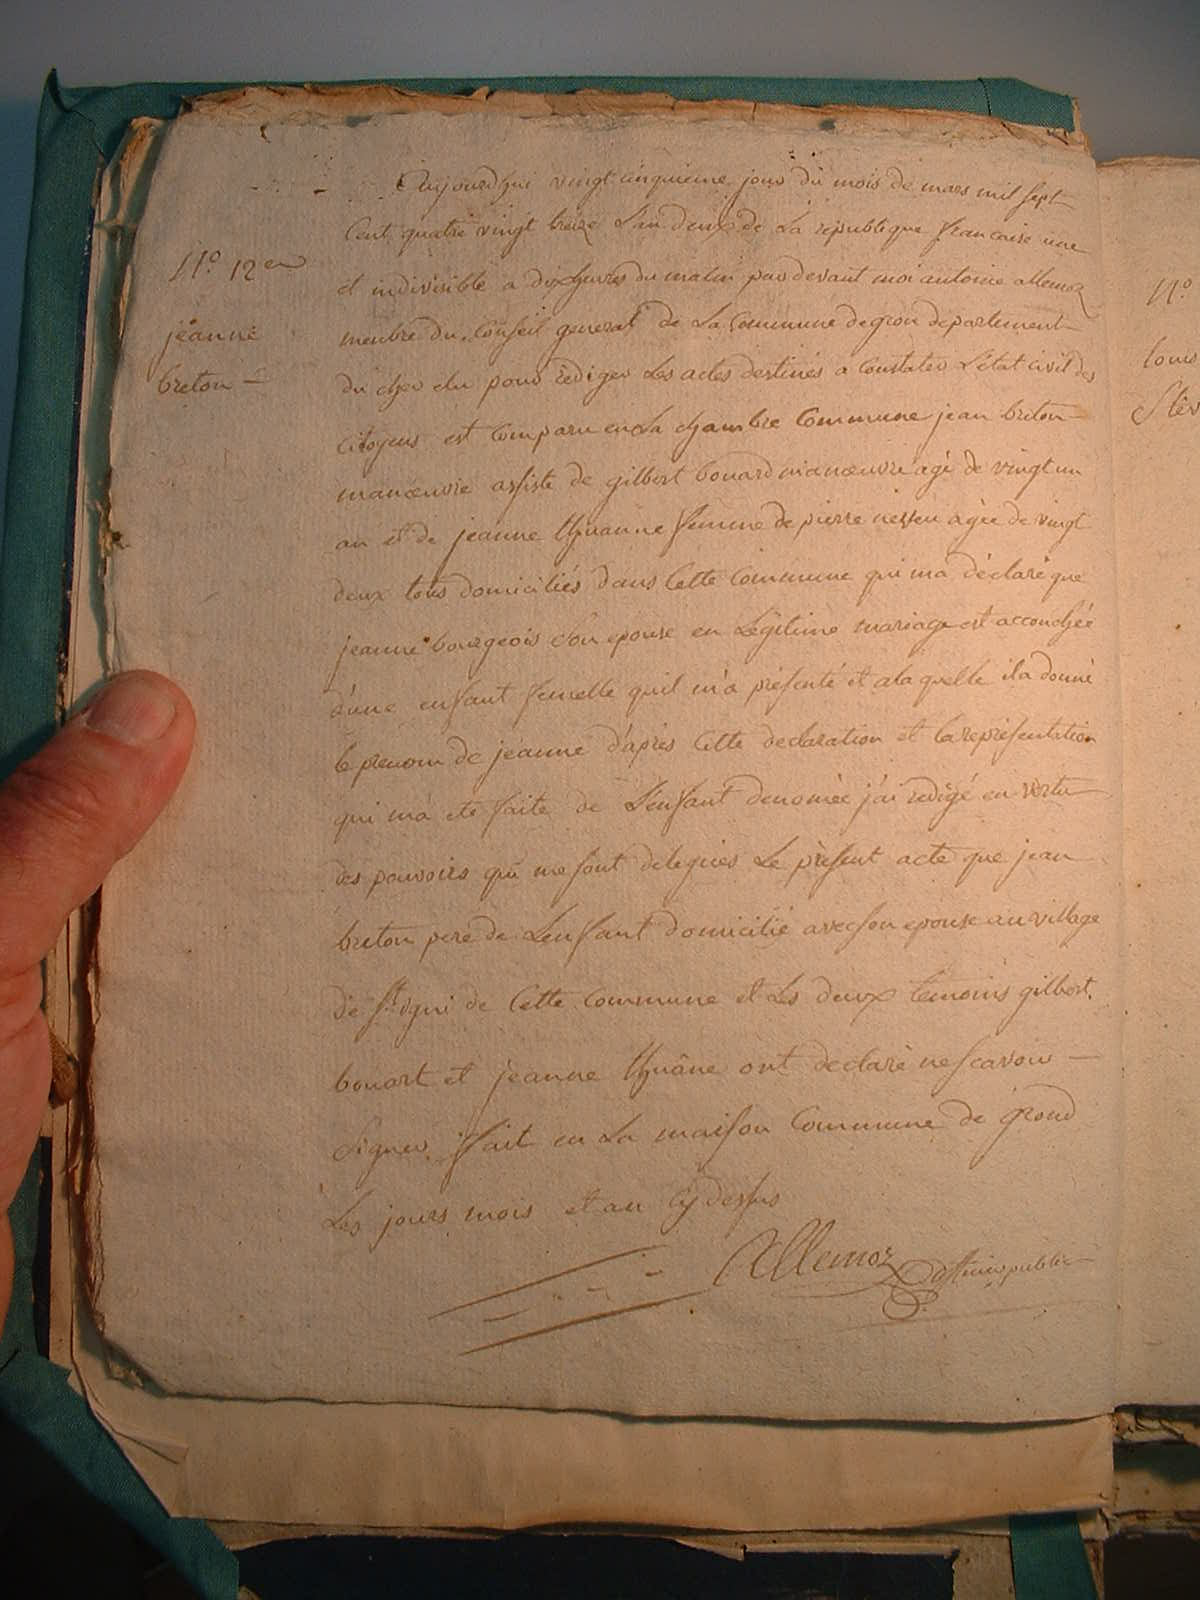 N.o 12eu
jeanne
breton =
Aujourdhui vingt cinquieme jour du mois de mars mil sept
Cent quatre vingt treize L'an deux de La republique francaise une
et indivisible a dix heures du matin pardevant moi antoine allemoz
membre du Conseil general de La Commune de gron departement
du cher elu pour rediger Les actes destinés a Constater L'état civil des
Citoyens est Comparu en La chambre Commune jean breton
manœuvre assisté de gilbert bouard manœuvre agé de vingt un
an et de jeanne thuanne femme de pierre agée de vingt
deux tous domiciliés dans Cette Commune qui ma déclaré que
jeanne bourgeois son epouse en Légitime mariage est accouchée
d'une enfant femelle quil m'a présenté et ala quelle il a donné
le prenom de jeanne d'apres Cette declaration et la représentation
qui m'a ete faite de L'enfant denomée j'ai redigé en vertu
des pouvoirs qui me sont delegués Le présent acte que jean
breton pere de L'enfant domicilié avec son epouse au village
de de Cette Commune et Les deux temoins gilbert
bouart et jeanne thuâne ont declaré ne scavoir
signer, fait en La maison Commune de grond
Les jours mois et an cy dessus
Allemoz officier public
N.o
louis